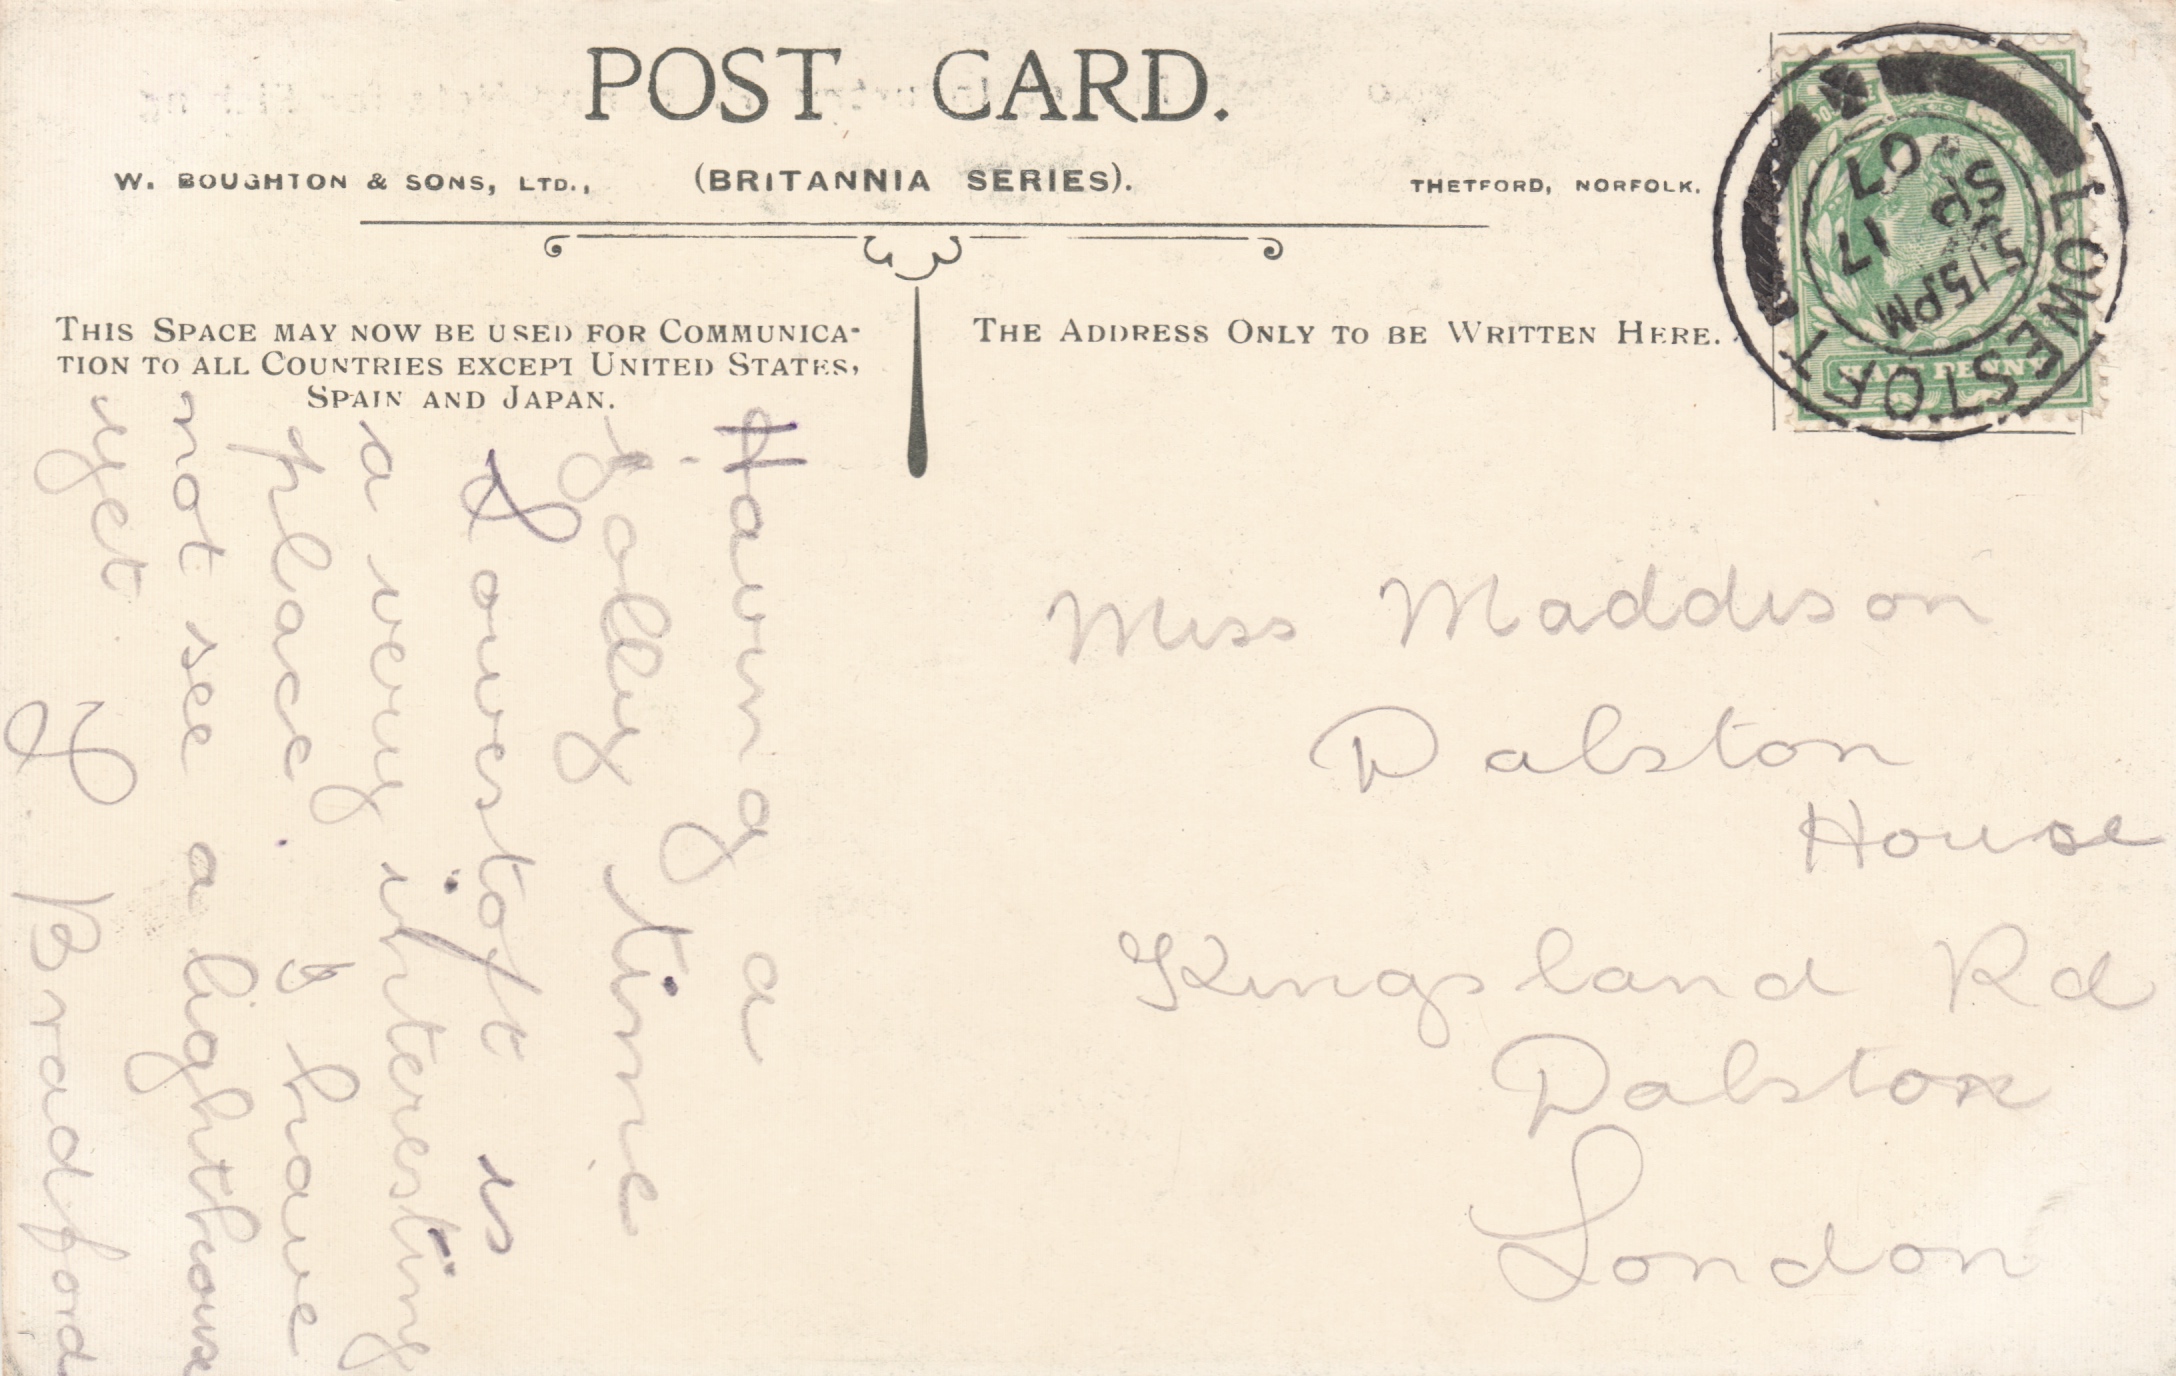 POST CARD.
W. BOUGHTON & SONS, LTD., (BRITANNIA SERIES). THETFORD, NORFOLK.
THIS SPACE MAY NOW BE USED FOR COMMUNICA-
TION TO ALL COUNTRIES EXCEPT UNITED STATES,
SPAIN AND JAPAN.
THE ADDRESS ONLY TO BE WRITTEN HERE.
LOWESTOFT
5 15 PM
SP 17
07
HALF PENNY
Having a
jolly time
Lowestoft is
a very interesting
place. I have
not see a lighthouse
yet. Bradford
Miss Maddison
Dalston
House
Kingsland Rd
Dalston
London